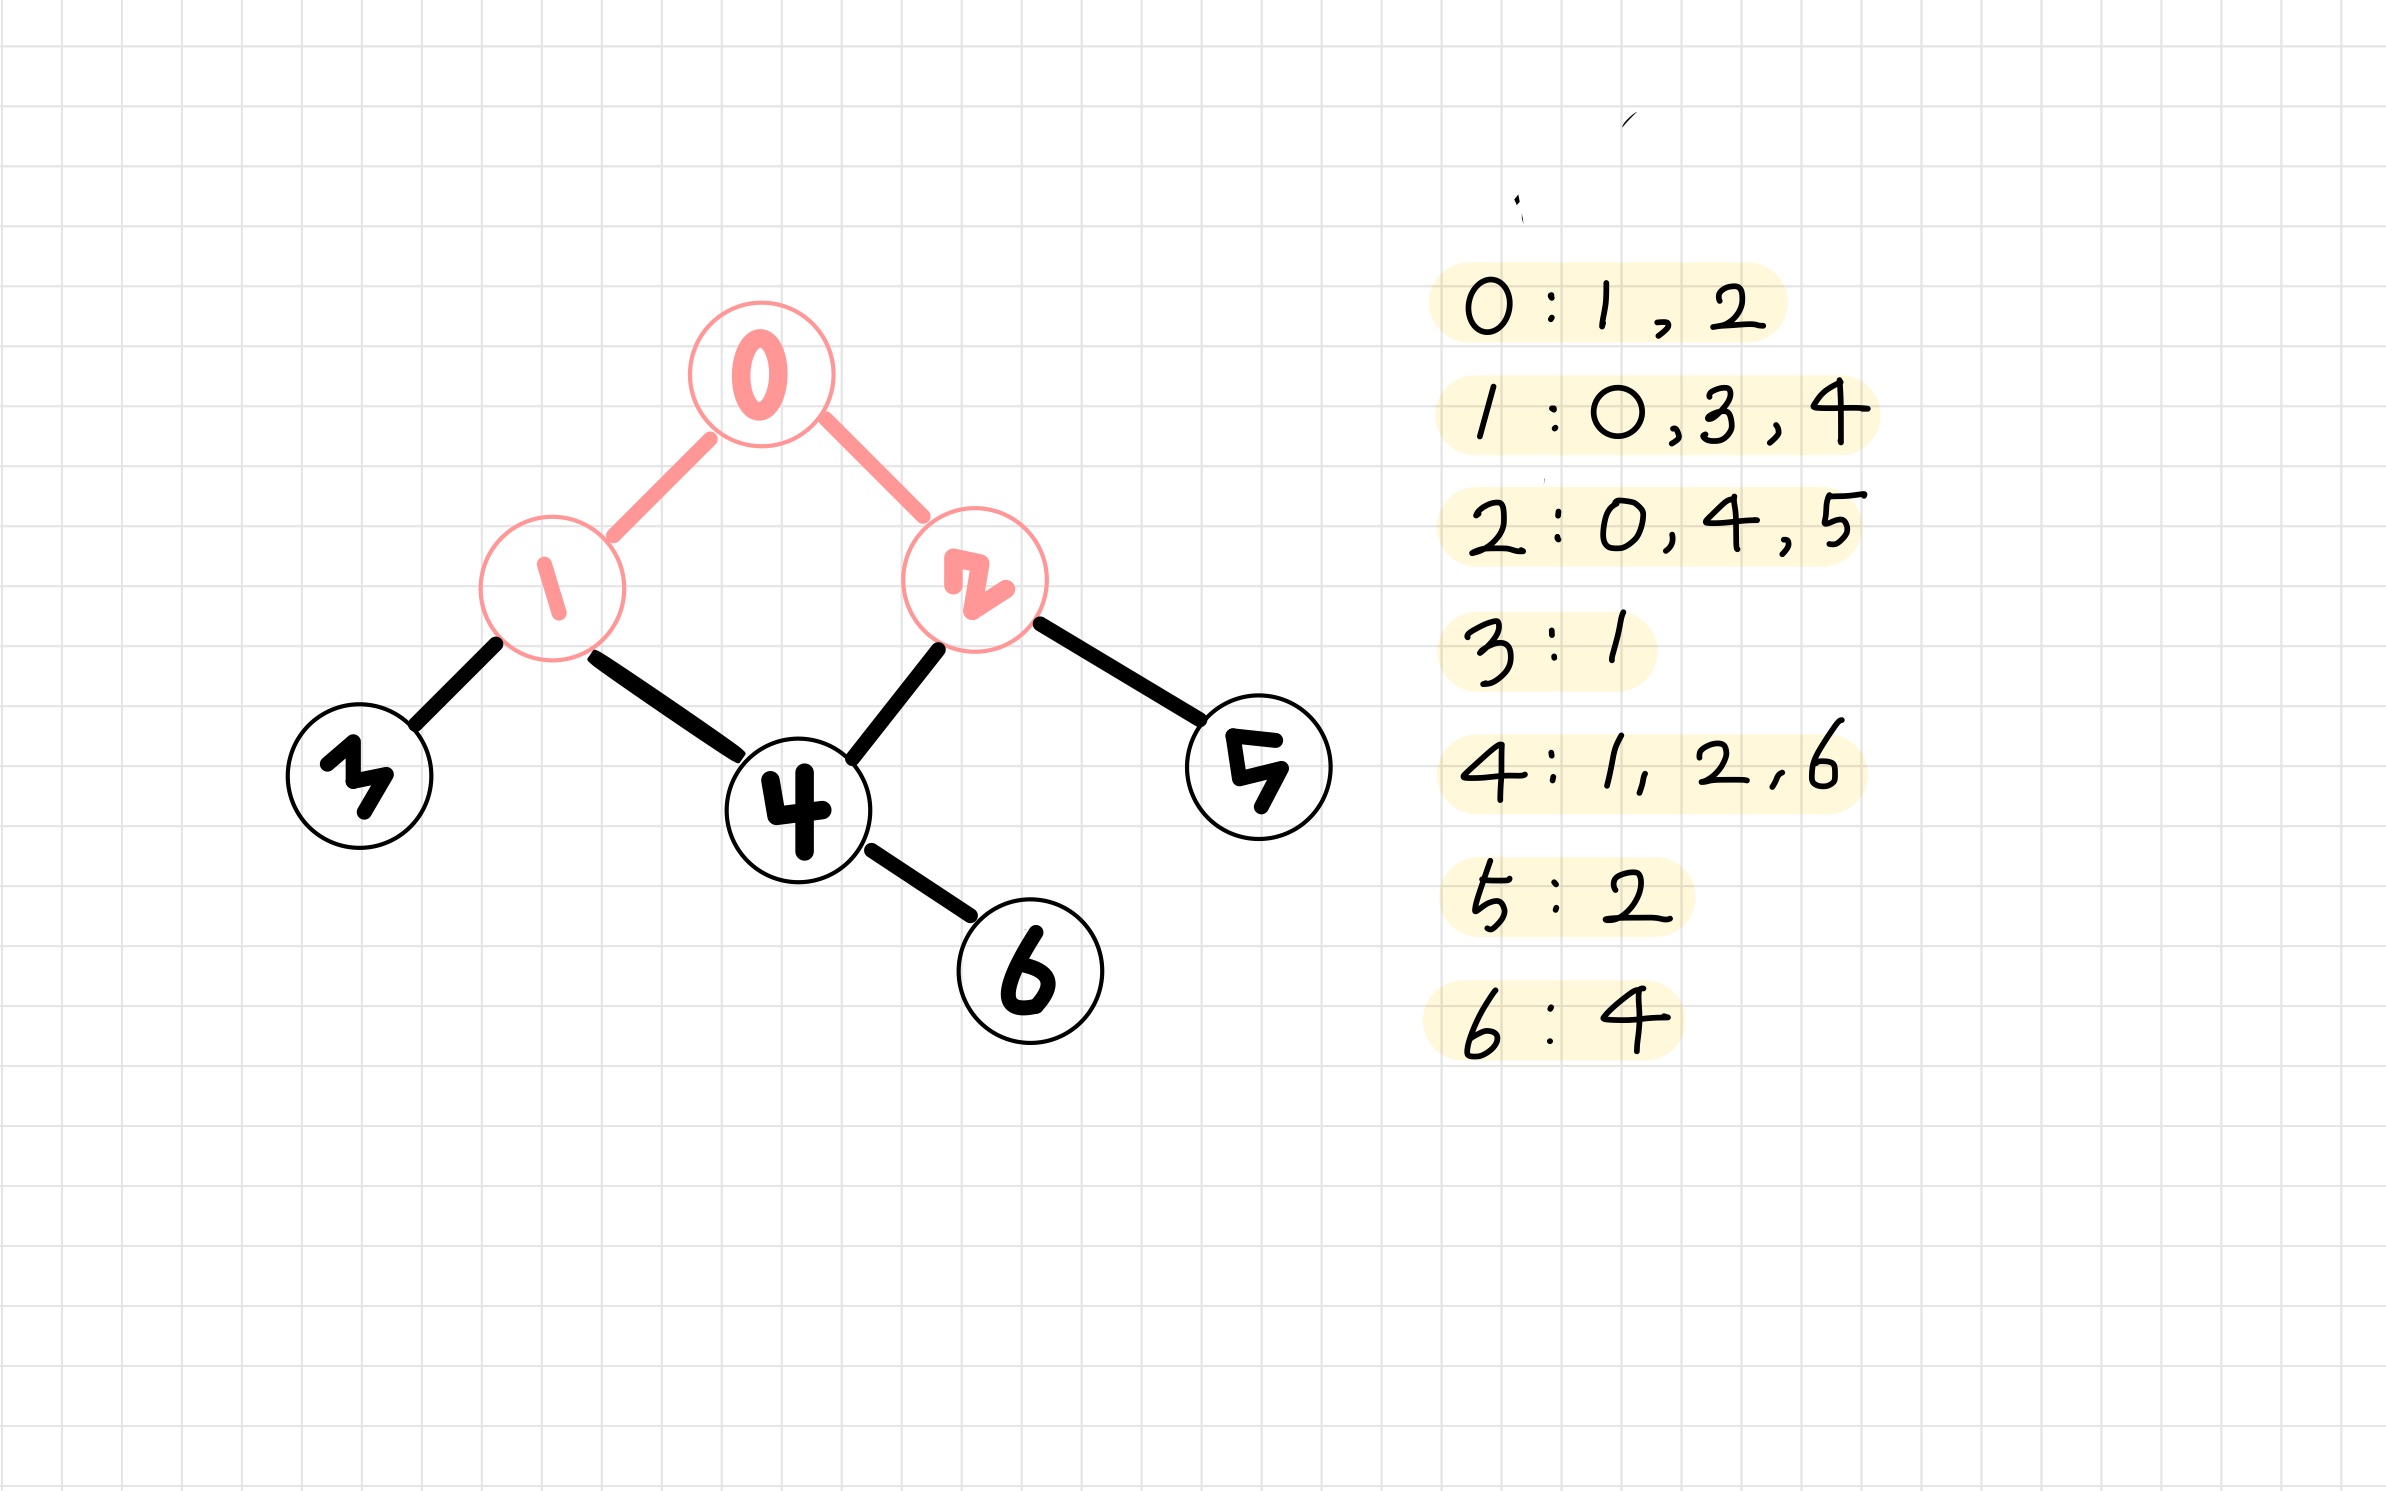 0
1
2
3
4
5
6
0 : 1 , 2
1 : 0 , 3 , 4
2 : 0 , 4 , 5
3 : 1
4 : 1 , 2 , 6
5 : 2
6 : 4